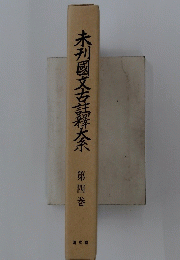 未刊國文古註釋大系
第四巻